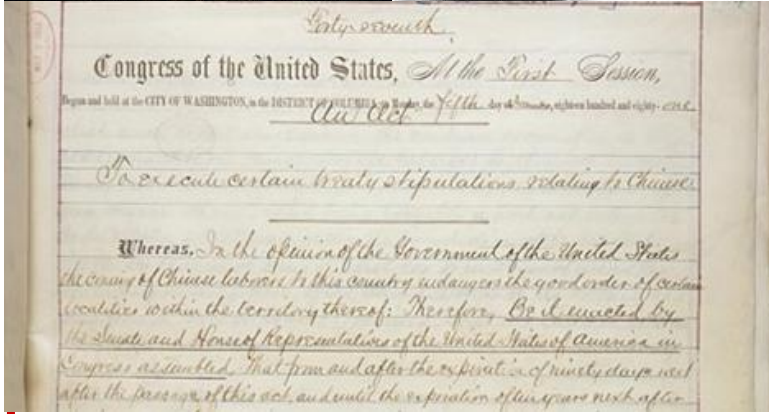 Forty-seventh
Congress of the United States, At the First Session,
Begun and held at the CITY OF WASHINGTON, in the DISTRICT OF COLUMBIA, on Monday, the fifth day of December, eighteen hundred and eighty-one
An Act
To execute certain treaty stipulations relating to Chinese.
Whereas, In the opinion of the Government of the United States
the coming of Chinese laborers to this country endangers the good order of certain
localities within the territory thereof: Therefore, Be it enacted by
the Senate and House of Representatives of the United States of America in
Congress assembled, That from and after the expiration of ninety days next
after the passage of this act, and until the expiration of ten years next after